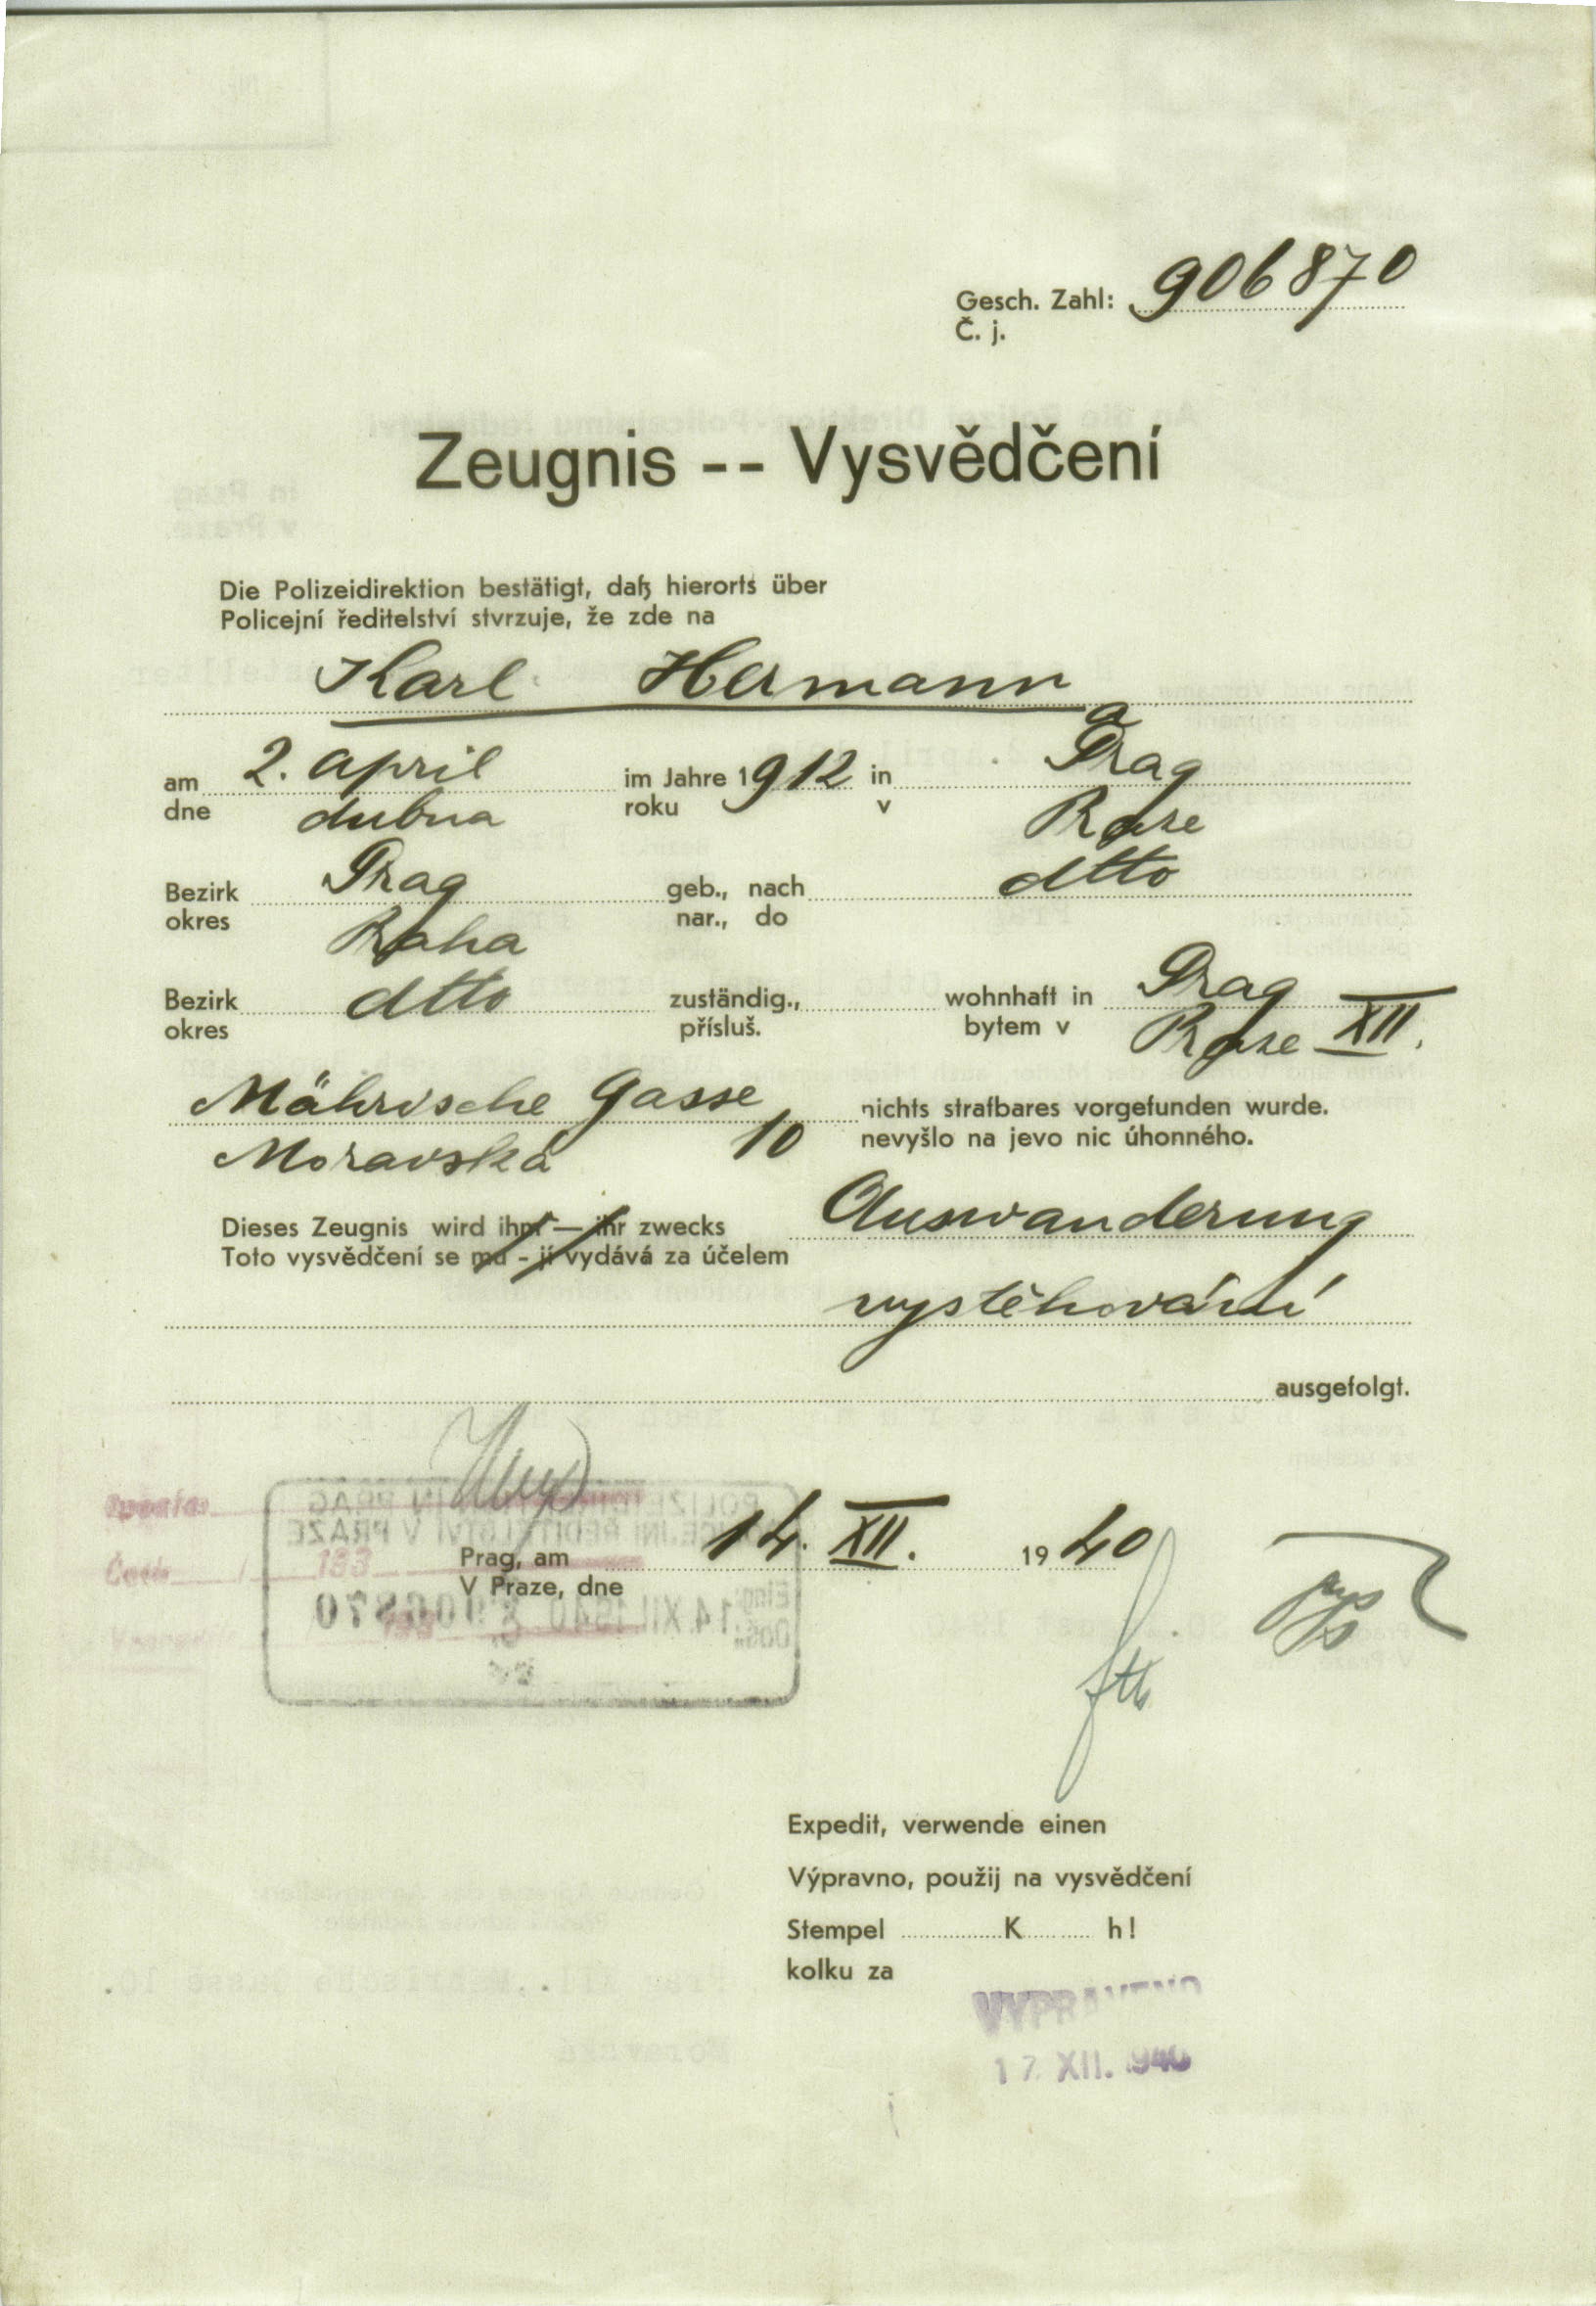 Gesch. Zahl: 906870
Č. j.
Zeugnis -- Vysvědčení
Die Polizeidirektion bestätigt, daß hierorts über
Policejní ředitelství stvrzuje, že zde na
Karl Hermann
am 2. april im Jahre 1912 in Prag
dne dubna roku v Praze
Bezirk Prag geb., nach dtto
okres Praha nar., do
Bezirk dtto zuständig., wohnhaft in Prag
okres přísluš. bytem v Praze XII.
Mährische Gasse nichts strafbares vorgefunden wurde.
Moravská 10 nevyšlo na jevo nic úhonného.
Dieses Zeugnis wird ihm — ihr zwecks Auswanderung
Toto vysvědčení se mu - jí vydává za účelem
vystěhování
ausgefolgt.
POLIZEIDIREKTION IN PRAG
POLICEJNÍ ŘEDITELSTVÍ V PRAZE
Prag, am 14. XII. 1940
V Praze, dne
Eing.: 14.XII.1940 906870
Doš.:
Expedit, verwende einen
Výpravno, použij na vysvědčení
Stempel K h!
kolku za
VYPRAVENO
17. XII. 1940